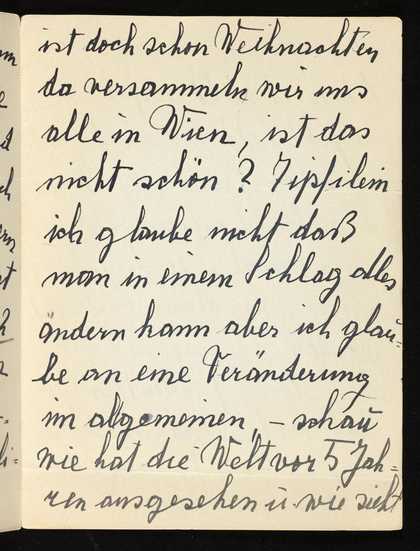 ist doch schon Weihnachten
da versammeln wir uns
alle in Wien, ist das
nicht schön? Zipfilein
ich glaube nicht daß
man in einem Schlag alles
ändern kann aber ich glau=
be an eine Veränderung
im algemeinen, – schau
wie hat die Welt vor 5 Jah=
ren ausgesehen u. wie sieht